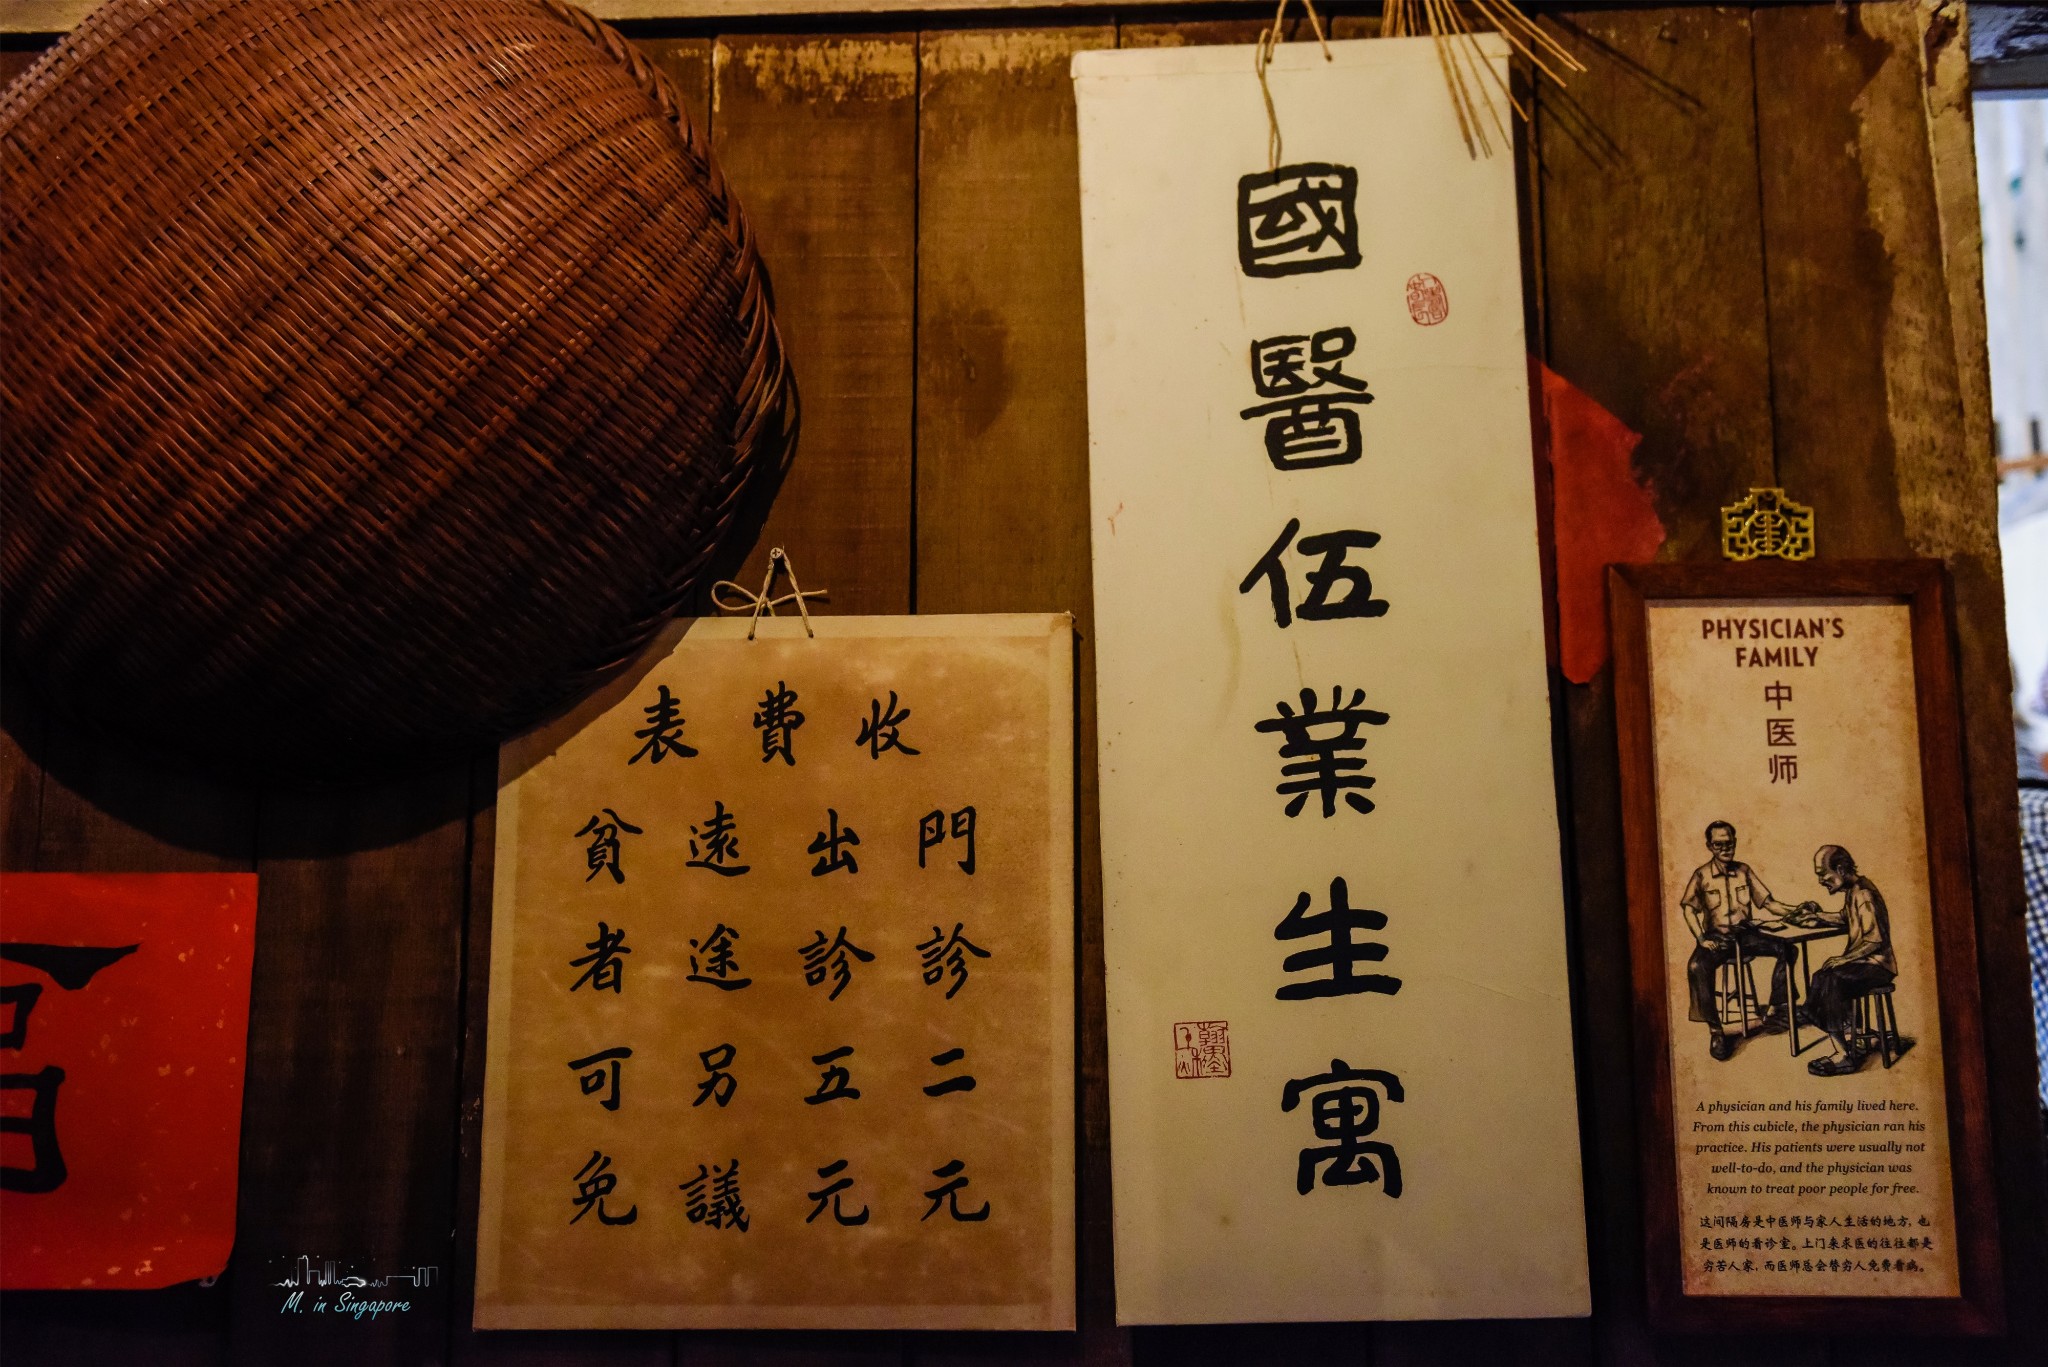 收費表
門診二元
出診五元
遠途另議
貧者可免
國醫伍業生寓
PHYSICIAN'S
FAMILY
中医师
A physician and his family lived here.
From this cubicle, the physician ran his
practice. His patients were usually not
well-to-do, and the physician was
known to treat poor people for free.
这间隔房是中医师与家人生活的地方，也
是医师的看诊室。上门来求医的往往都是
穷苦人家，而医师总会替穷人免费看病。
M. in Singapore